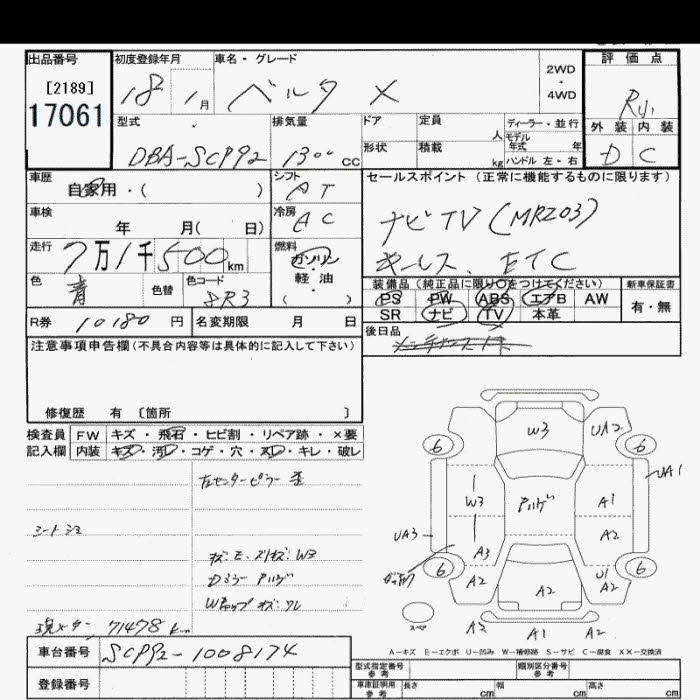 出品番号
[2189]
17061
初度登録年月
18 1月
車名・グレード
ベルタ X
2WD
・
4WD
評価点
外装 内装
D C
型式
DBA-SCP92
排気量
1300cc
ドア
定員
人
ディーラー・並行
モデル
年式 年
形状
積載
kg
ハンドル 左・右
車歴
自家用・( )
シフト
AT
セールスポイント (正常に機能するものに限ります)
車検
年 月( 日)
冷房
AC
ナビTV(MRZ03)
走行
7万1千500km
燃料
ガソリン
・
軽油
( )
キーレス、ETC
色
青
色替
色コード
8R3
装備品(純正品に限り○をつけてください)
新車保証書
PS PW ABS エアB AW
SR ナビ TV 本革
有・無
R券 10180円
名変期限 月 日
後日品
注意事項申告欄(不具合内容等は具体的に記入して下さい)
修復歴 有 〔箇所 〕
検査員
記入欄
FW キズ・飛石・ヒビ割・リペア跡・×要
内装 キズ・汚レ・コゲ・穴・スレ・キレ・破レ
左センターピラー
W3
71478 km
車台番号 SCP92-1008174
登録番号
W3 UA2
6 6
UA1
W3 A1
UA3 A3 A2
6 6
A2 A2 U1 A2
A2 A1 A2
スペア
A－キズ E－エクボ U－凹み W－補修跡 S－サビ C－腐食 XX－交換済
型式指定番号
参考
類別区分番号
参考
車庫証明用
参考
長さ cm
幅 cm
高さ cm